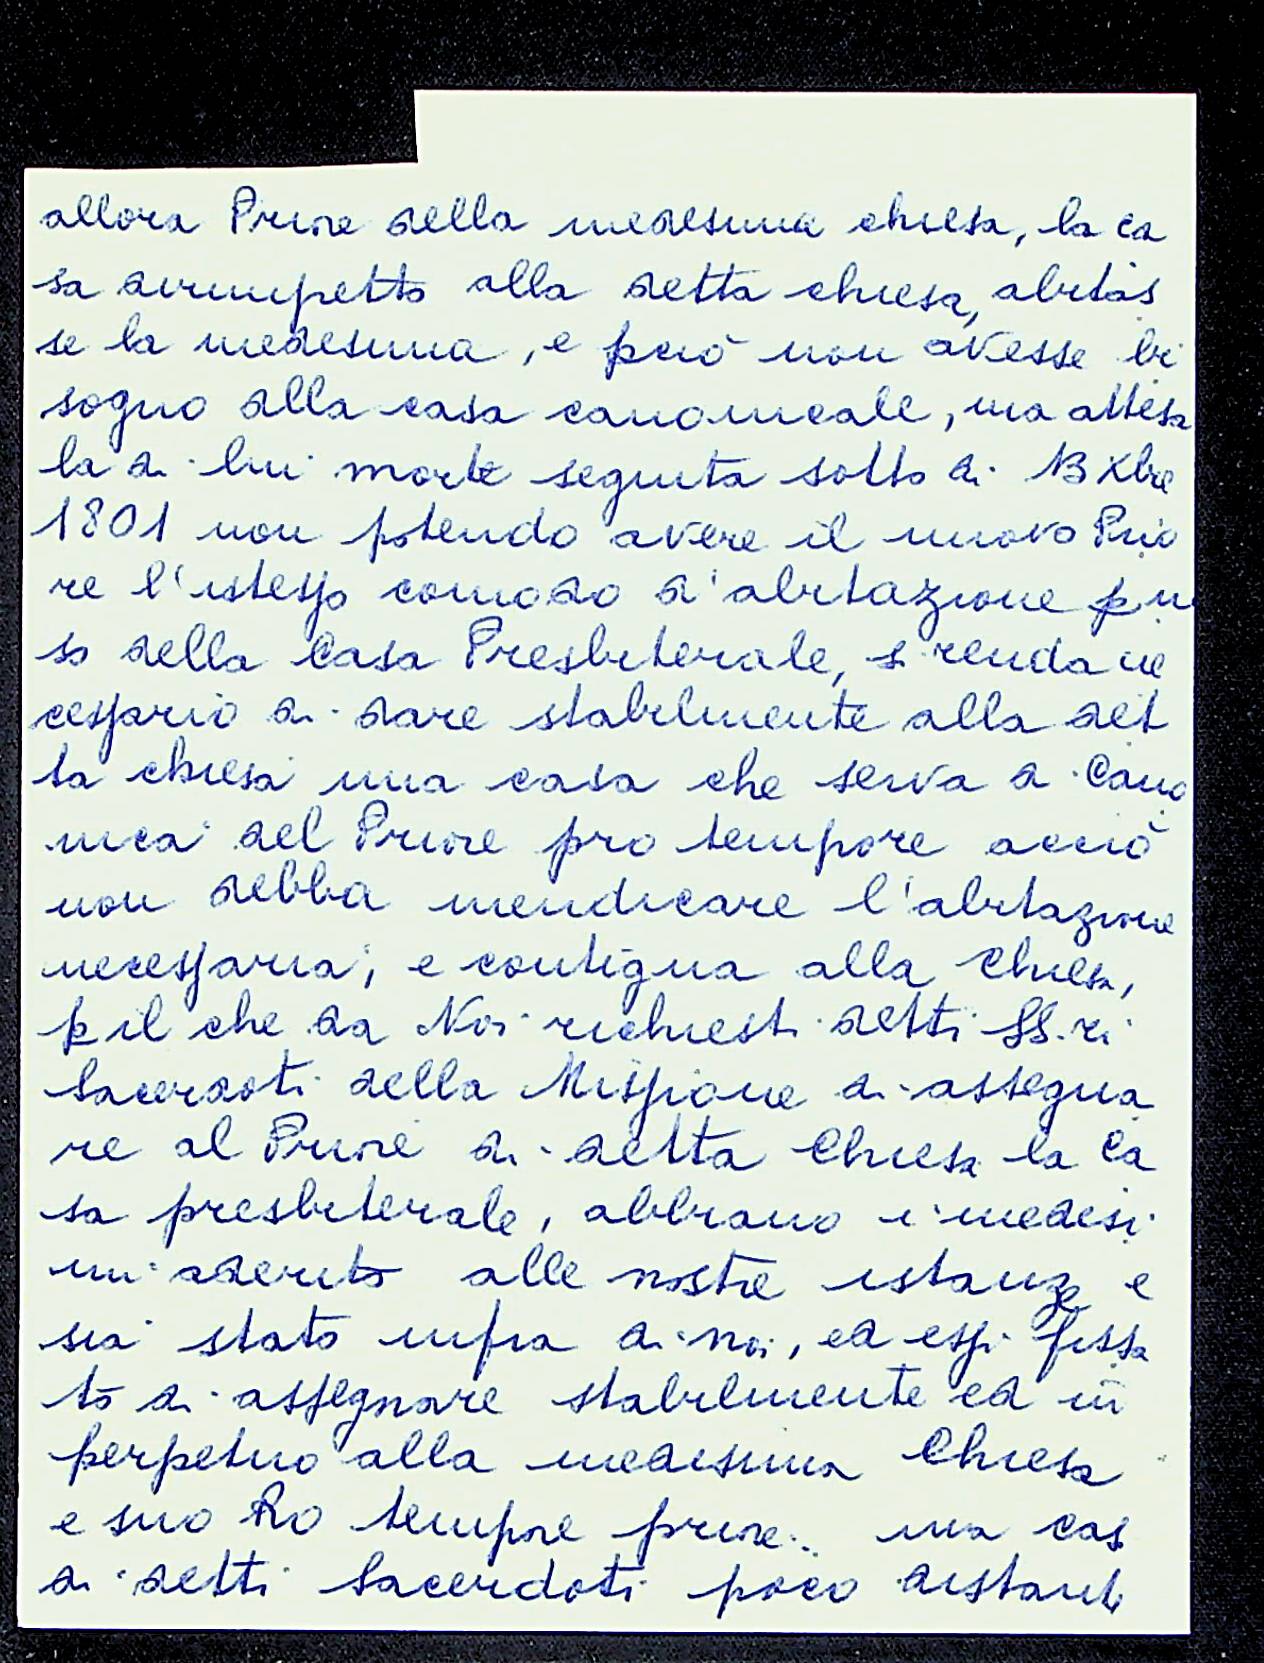 allora Priore della medesima chiesa, la ca
sa dirimpetto alla detta chiesa, abitas
se la medesima, e perciò non avesse bi
sogno alla casa canonicale, ma attesa
la di lui morte seguita sotto di 13 Xbre
1801 non potendo avere il nuovo Prio
re l'istesso comodo d'abitazione
so della Casa Presbiterale, si renda ne
cessario di dare stabilmente alla det
ta chiesa una casa che serva di Cano
nica del Priore pro tempore acciò
non debba mendicare l'abitazione
necessaria, e contigua alla Chiesa,
p il che da Noi richiesti detti SS.ri
Sacerdoti della Missione di assegna
re al Priore di detta Chiesa la Ca
sa presbiterale, abbiano i medesi
mi aderito alle nostre istanze e
sia stato infra di noi, ed essi fissa
to di assegnare stabilmente ed in
perpetuo alla medesima Chiesa
e suo Pro tempore priore.. una cas
di detti Sacerdoti poco distanti